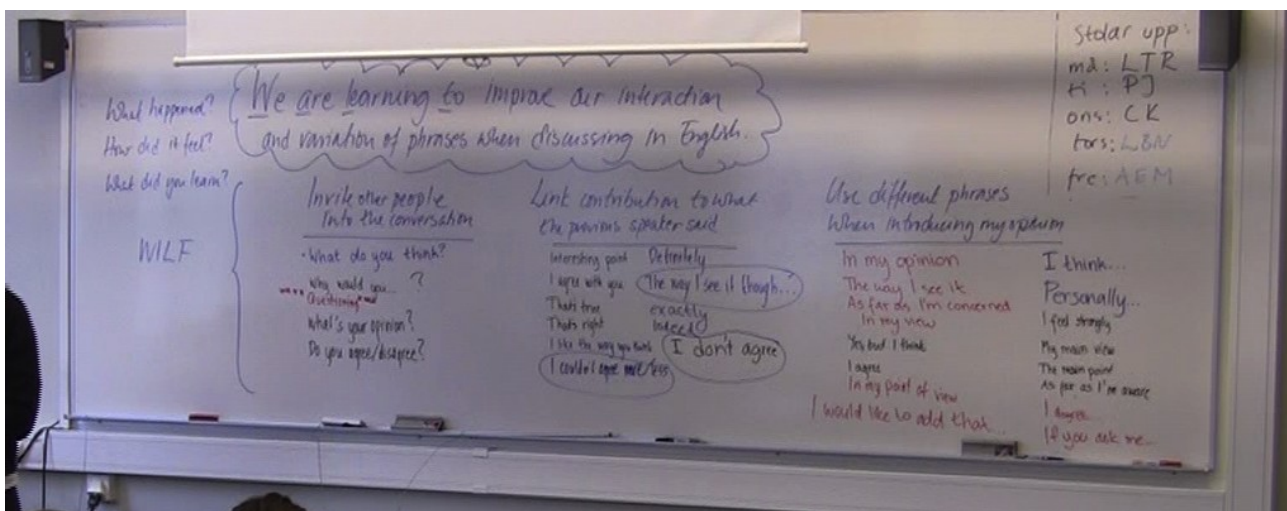 What happened?
How did it feel?
What did you learn?
WILF
We are learning to improve our interaction
and variation of phrases when discussing in English.
Invite other people
Into the conversation
• What do you think?
Why would you... ?
Questioning
What's your opinion?
Do you agree/disagree?
Link contribution to what
the previous speaker said
Interesting point
I agree with you
Thats true
Thats right
I like the way you
I couldn't agree more/less
Definitely
The way I see it though...
exactly
Indeed
I don't agree
Use different phrases
When introducing my opinion
In my opinion
The way I see it
As far as I'm concerned
In my view
Yes but I think
I agree
In my point of view
I would like to add that...
I think...
Personally...
I feel strongly
My main view
The main point
As far as I'm aware
If you ask me...
Stolar upp:
må: LTR
ti: PJ
ons: CK
tors: LBN
fre: AEM